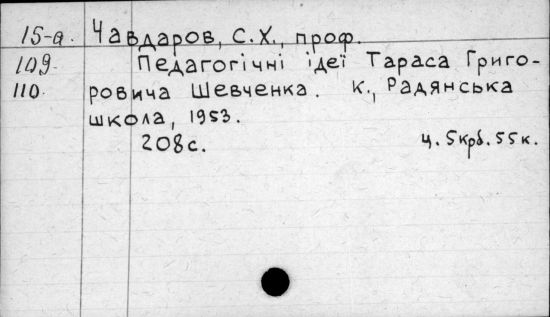 15-а. Чавдаров, С.Х., проф.
109. Педагогічні ідеї Тараса Григо-
110. ровича Шевченка. К., Радянська
школа, 1953.
208с. ц. 5крб. 55к.